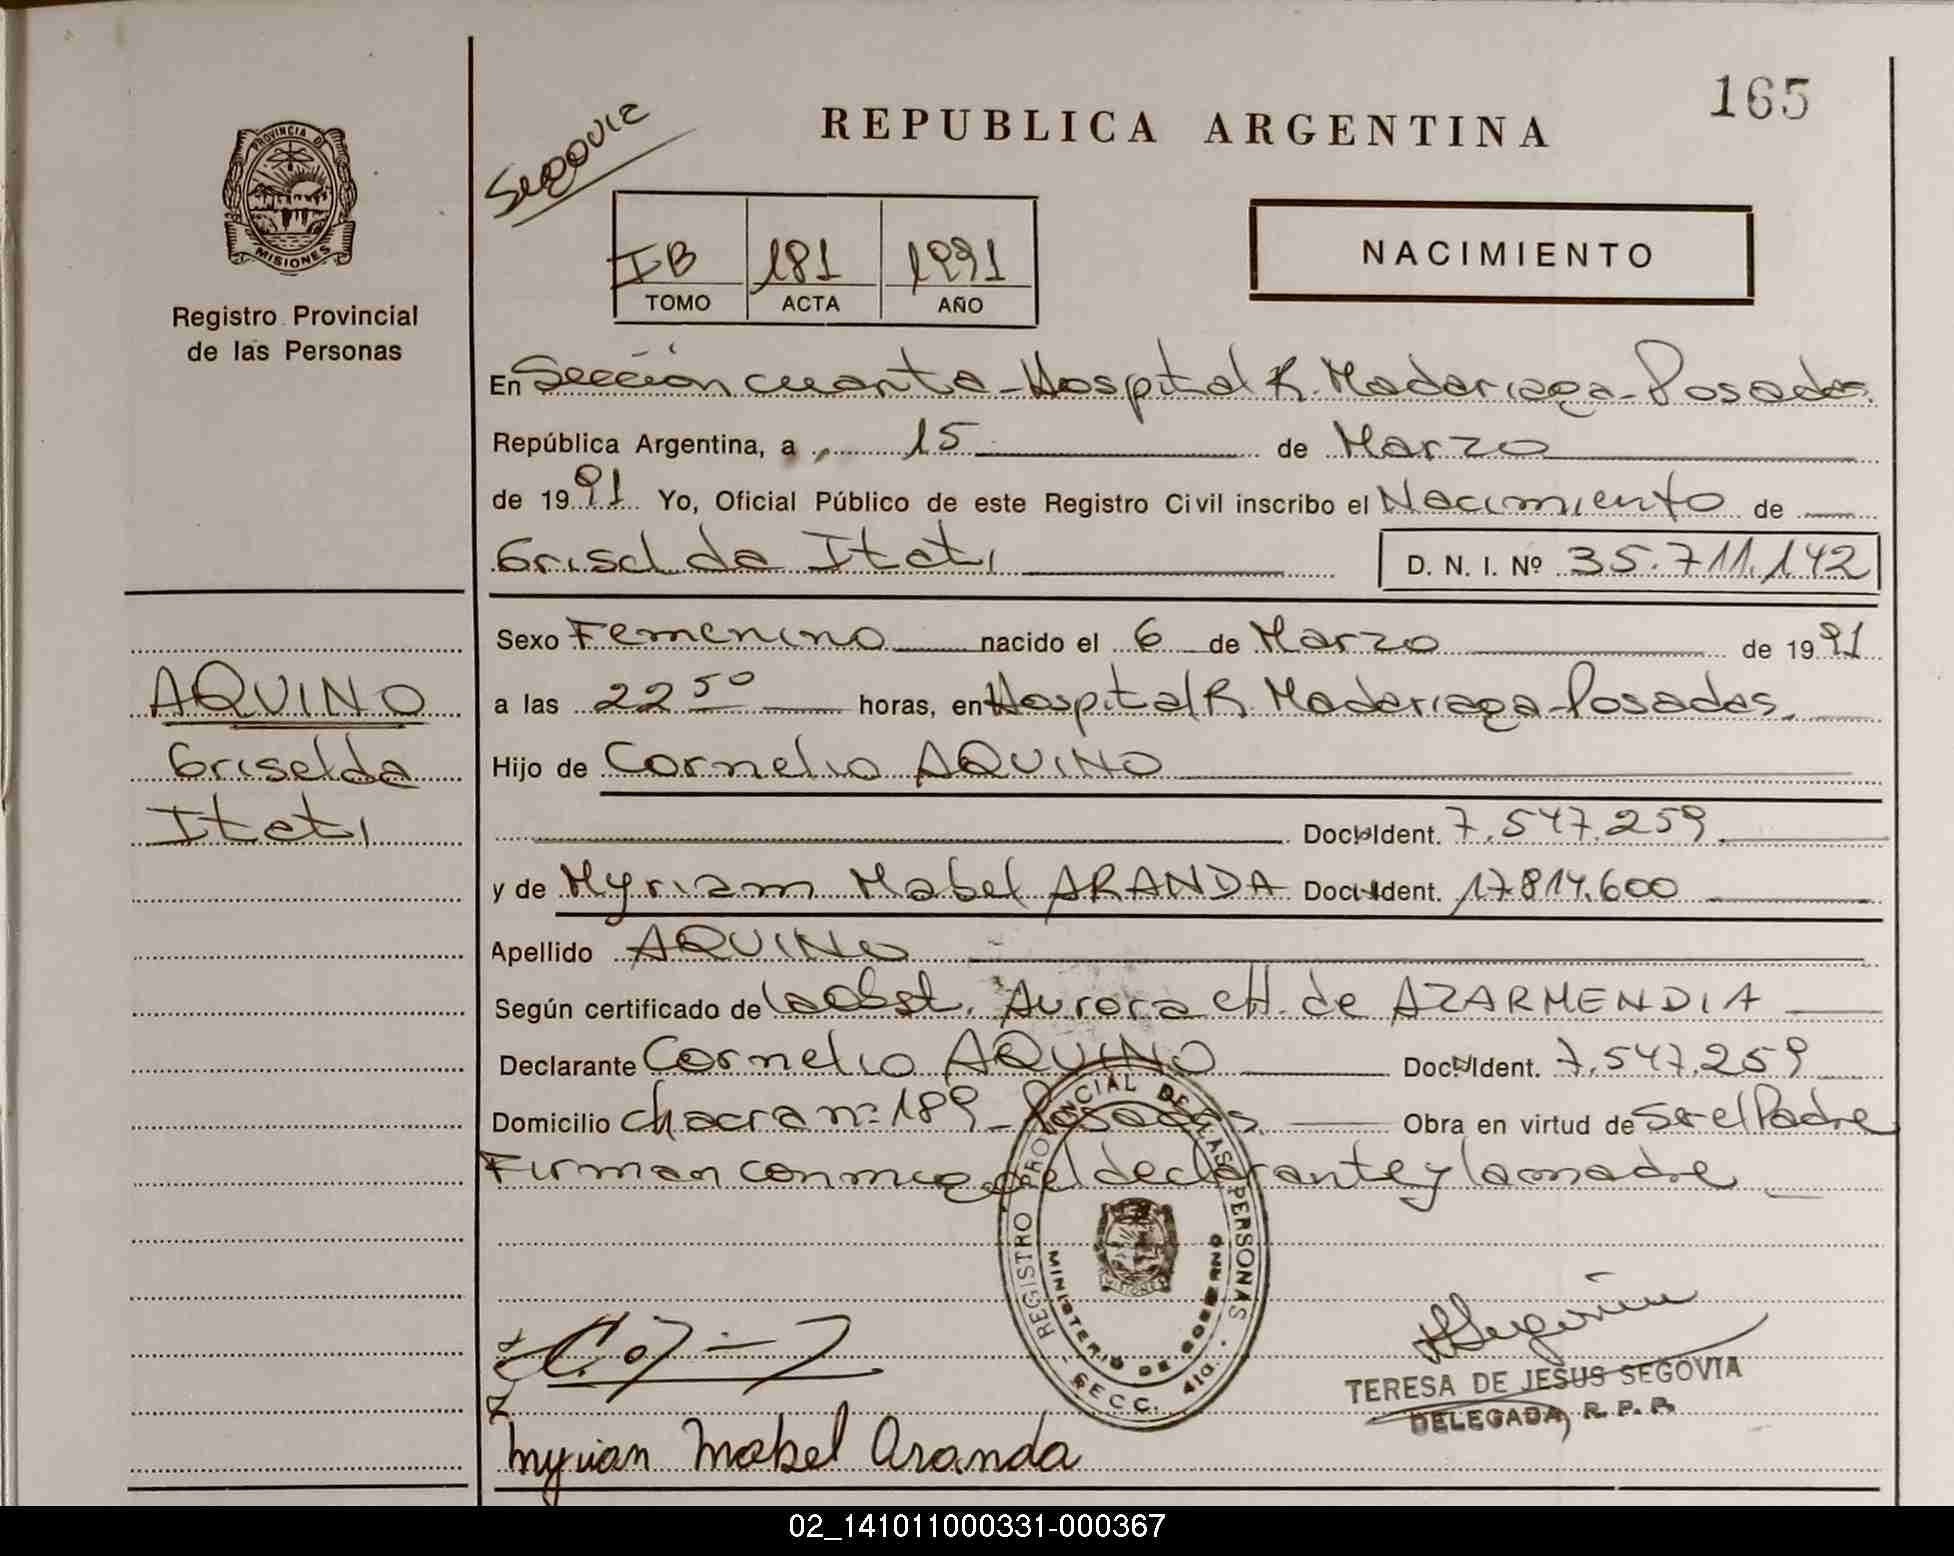 165
REPUBLICA ARGENTINA
Segovia
PROVINCIA DE
MISIONES
Registro Provincial
de las Personas
IB 181 1991
TOMO ACTA AÑO
NACIMIENTO
En Sección cuarta - Hospital R. Madariaga - Posadas.
República Argentina, a 15 de Marzo
de 1991 Yo, Oficial Público de este Registro Civil inscribo el Nacimiento de
Griselda Itati D. N. I. Nº 35.711.142
Sexo Femenino nacido el 6 de Marzo de 1991
AQUINO
Griselda
Itati
a las 22 50 horas, en Hospital R. Madariaga - Posadas.
Hijo de Cornelio AQUINO
Doc. Ident. 7.547.259
y de Myriam Mabel ARANDA Doc. Ident. 17.814.600
Apellido AQUINO
Según certificado de la Obst. Aurora CH. de AZARMENDIA
Declarante Cornelio AQUINO Doc. Ident. 7.547.259
Domicilio chacra nº 189 - Posadas. Obra en virtud de Ser el Padre
Firman conmigo el declarante y la madre
REGISTRO PROVINCIAL DE LAS PERSONAS
MINISTERIO DE GOBIERNO
SECC. 4ta.
MISIONES
TERESA DE JESUS SEGOVIA
DELEGADA R. P. P.
Myrian Mabel Aranda
02_141011000331-000367